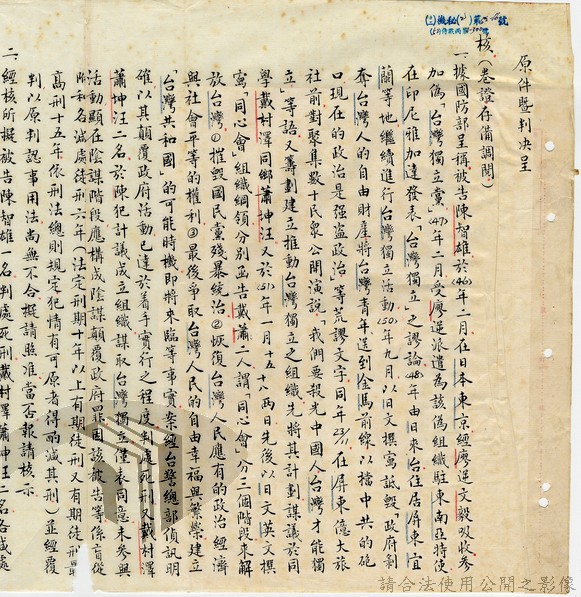 原件暨判決呈
核。(卷證存備調閱)
一、據國防部呈稱被告陳智雄於(46)年二月在日本東京經廖逆文毅吸收參
加偽「台灣獨立黨」(47)年二月受廖逆派遣為該偽組織駐東南亞特使
在印尼雅加達發表「台灣獨立」之謬論(48)年由日來台住居屏東宜
蘭等地繼續進行台灣獨立活動(50)年九月以日文撰寫詆毀「政府剝
奪台灣人的自由財產將台灣青年送到金馬前線以擋中共的砲
口現在的政治是強盜政治」等荒謬文字同年23/11在屏東億大旅
社前對聚集數十民眾公開演說「我們要殺光中國人台灣才能獨
立」等語又籌劃建立推動台灣獨立之組織先將其計劃謀議於同
學戴村澤同鄉蕭坤汪又於(51)年一月十五、十八兩日先後以日文英文撰
寫「同心會」組織綱領分別函告戴蕭二人謂「同心會」分三個階段來解
放台灣①摧毀國民黨殘暴統治②恢復台灣人民應有的政治經濟
與社會平等的權利③最後爭取台灣人民的自由幸福與繁榮建立
「台灣共和國」的可能時機即將來臨等事實案經台警總部偵訊明
確以其顛覆政府活動已達於着手實行之程度判處死刑又戴村澤
蕭坤汪二名於陳犯計議成立組織謀取台灣獨立僅表同意未參與
活動顯在陰謀階段應構成陰謀顛覆政府罪因該被告等係盲從
附和各減處徒刑六年(法定刑期十年以上有期徒刑又有期徒刑最
高刑十五年依刑法總則規定犯情有可原者得酌減其刑)並經覆
判以原判認事用法尚無不合擬請照准當否報請核示
二、經核所擬被告陳智雄一名判處死刑戴村澤蕭坤汪二名各減處
請合法使用公開之影像